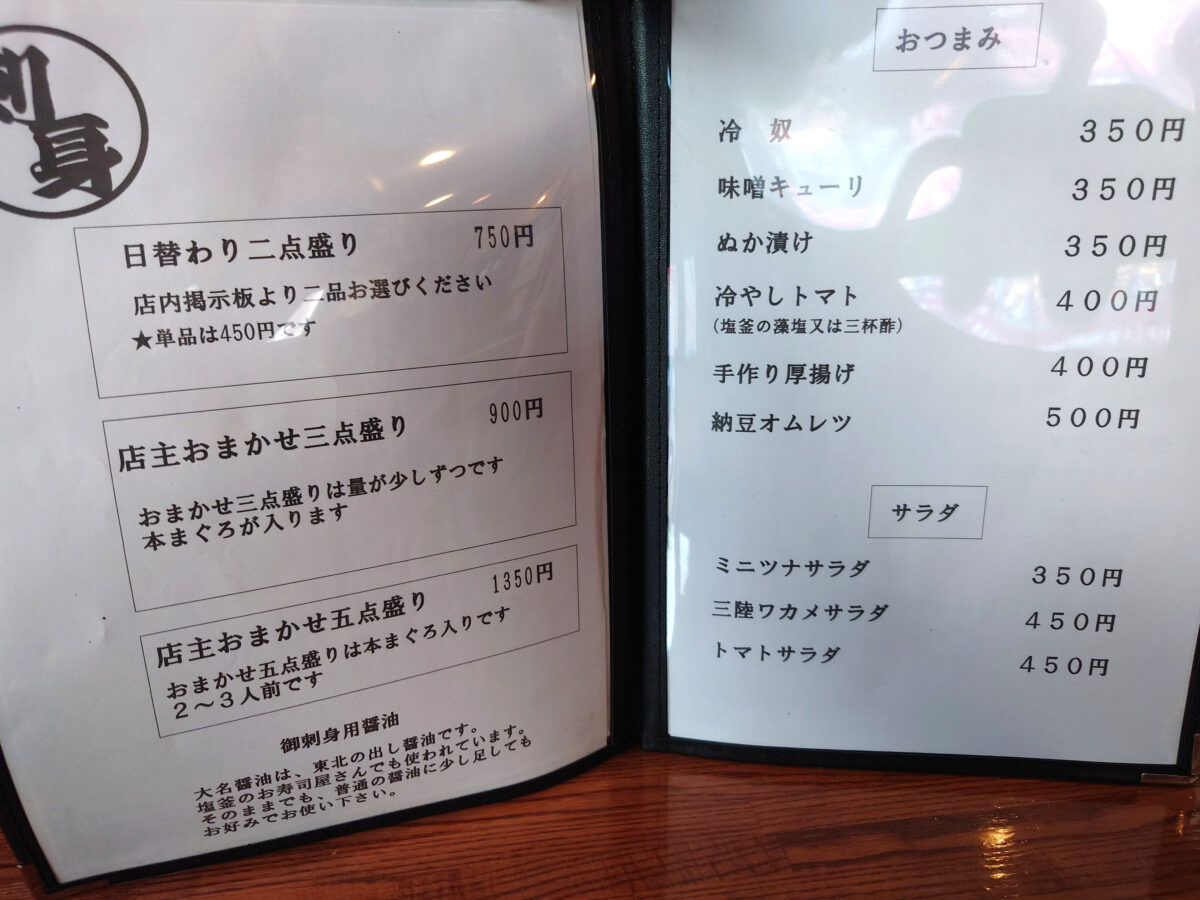 刺身
日替わり二点盛り 750円
店内掲示板より二品お選びください
★単品は450円です
店主おまかせ三点盛り 900円
おまかせ三点盛りは量が少しずつです
本まぐろが入ります
店主おまかせ五点盛り 1350円
おまかせ五点盛りは本まぐろ入りです
2～3人前です
御刺身用醤油
大名醤油は、東北の出し醤油です。
塩釜のお寿司屋さんでも使われています。
そのままでも、普通の醤油に少し足しても
お好みでお使い下さい。
おつまみ
冷 奴 350円
味噌キューリ 350円
ぬか漬け 350円
冷やしトマト 400円
(塩釜の藻塩又は三杯酢)
手作り厚揚げ 400円
納豆オムレツ 500円
サラダ
ミニツナサラダ 350円
三陸ワカメサラダ 450円
トマトサラダ 450円